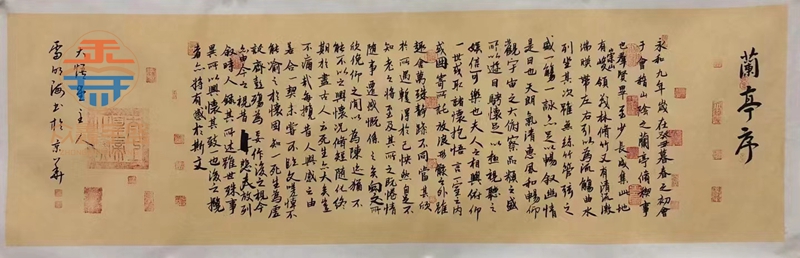 蘭亭序
永和九年歲在癸丑暮春之初會
于會稽山陰之蘭亭脩禊事
也群賢畢至少長咸集此地
有崇山峻領茂林脩竹又有清流激
湍暎帶左右引以為流觴曲水
列坐其次雖無絲竹管弦之
盛一觴一詠亦足以暢敘幽情
是日也天朗氣清惠風和暢仰
觀宇宙之大俯察品類之盛
所以遊目騁懷足以極視聽之
娛信可樂也夫人之相與俯仰
一世或取諸懷抱悟言一室之內
或因寄所託放浪形骸之外雖
趣舍萬殊靜躁不同當其欣
於所遇蹔得於己怏然自足不
知老之將至及其所之既惓情
隨事遷感慨係之矣向之所
欣俛仰之間以為陳迹猶不
能不以之興懷況脩短隨化終
期於盡古人云死生亦大矣豈
不痛哉每攬昔人興感之由
若合一契未嘗不臨文嗟悼不
能喻之於懷固知一死生為虛
誕齊彭殤為妄作後之視今
亦由今之視昔悲夫故列
敘時人錄其所述雖世殊事
異所以興懷其致一也後之攬
者亦將有感於斯文
主人
雷明海书於京華